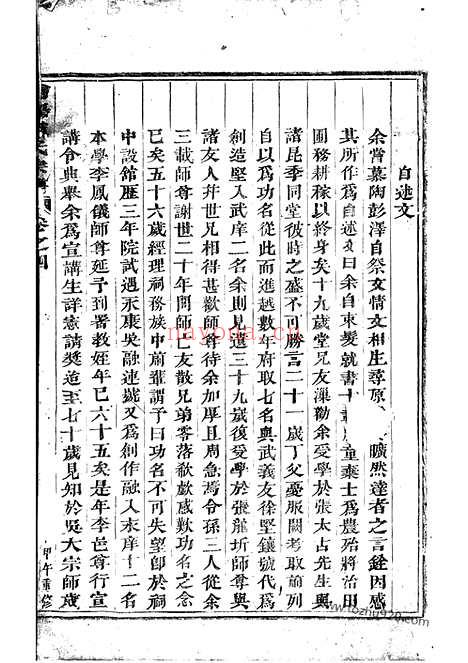 自述文
余嘗慕陶彭澤自祭文情文相生尋原 曠然達者之言銓因感
其所作爲自述文曰余自束髮就書十 童棄士爲農殆將治田
圃務耕稼以終身矣十九歲堂兄友灝勸余受學於張太占先生與
諸昆季同堂彼時之盛不可勝言二十一歲丁父憂服闋考取前列
自以爲功名從此而進越數年府取七名與武義友徐堅鑲號代爲
創造堅入武庠二名余則見遺三十九歲復受學於張 圻師尊與
諸友人幷世兄相得甚歡師尊待余加厚且周急焉令孫三人從余
三載師尊謝世二十年間師亡友散兄弟零落欷歔感歎功名之念
已矣五十六歲經理祠務族中前輩謂予曰功名不可失望卽於祠
中設館歷三年院試遇永康吳融連 又爲創作融入末庠十二名
本學李鳳儀師尊延予到署教姪年已六十五矣是年李邑尊行宣
講令典舉余爲宣講生詳憲請獎造至七十歲見知於吳大宗師歲
卷之四
甲午重修
nayona.cn
www.fozhu920.com